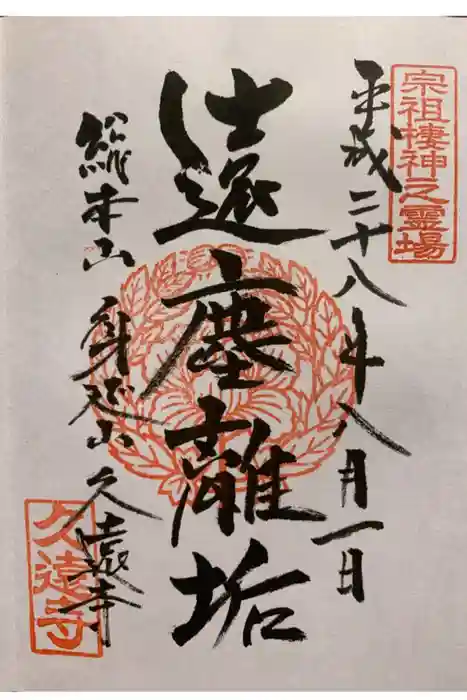 宗祖棲神之霊場
平成二十八年八月一日
遠塵離垢
総本山 身延山 久遠寺
久遠寺